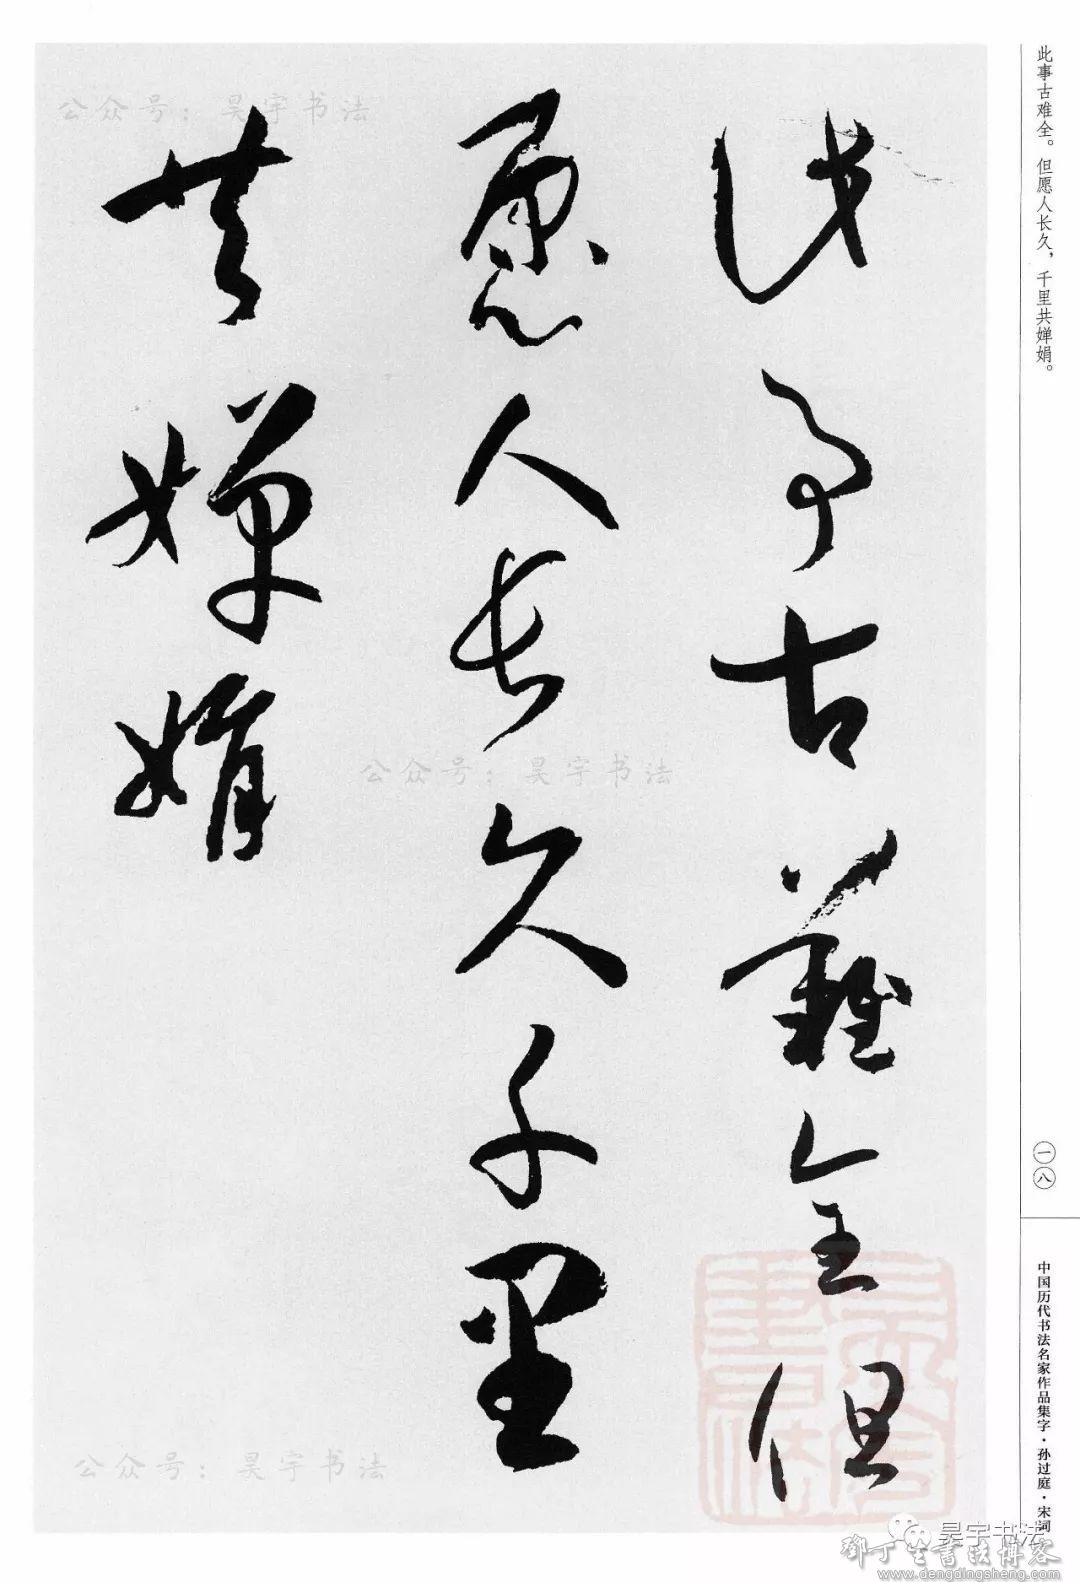 此事古难全。但愿人长久，千里共婵娟。
此事古難全但
愿人長久千里
共嬋娟
一八
中国历代书法名家作品集字·孙过庭·宋词
公众号：昊宇书法
公众号：昊宇书法
公众号：昊宇书法
昊宇书法
鄧丁生書法博客
www.dengdingsheng.com